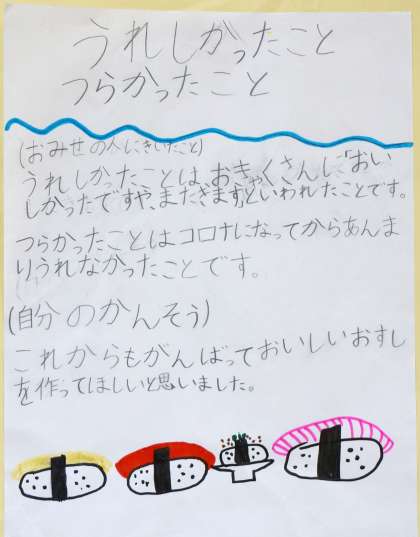 うれしかったこと
つらかったこと
(おみせの人にきいたこと)
うれしかったことは、おきゃくさんに「おい
しかったですや、まだきます」といわれたことです。
つらかったことはコロナになってからあんま
りうれなかったことです。
(自分のかんそう)
これからもがんばっておいしいおすし
を作ってほしいと思いました。